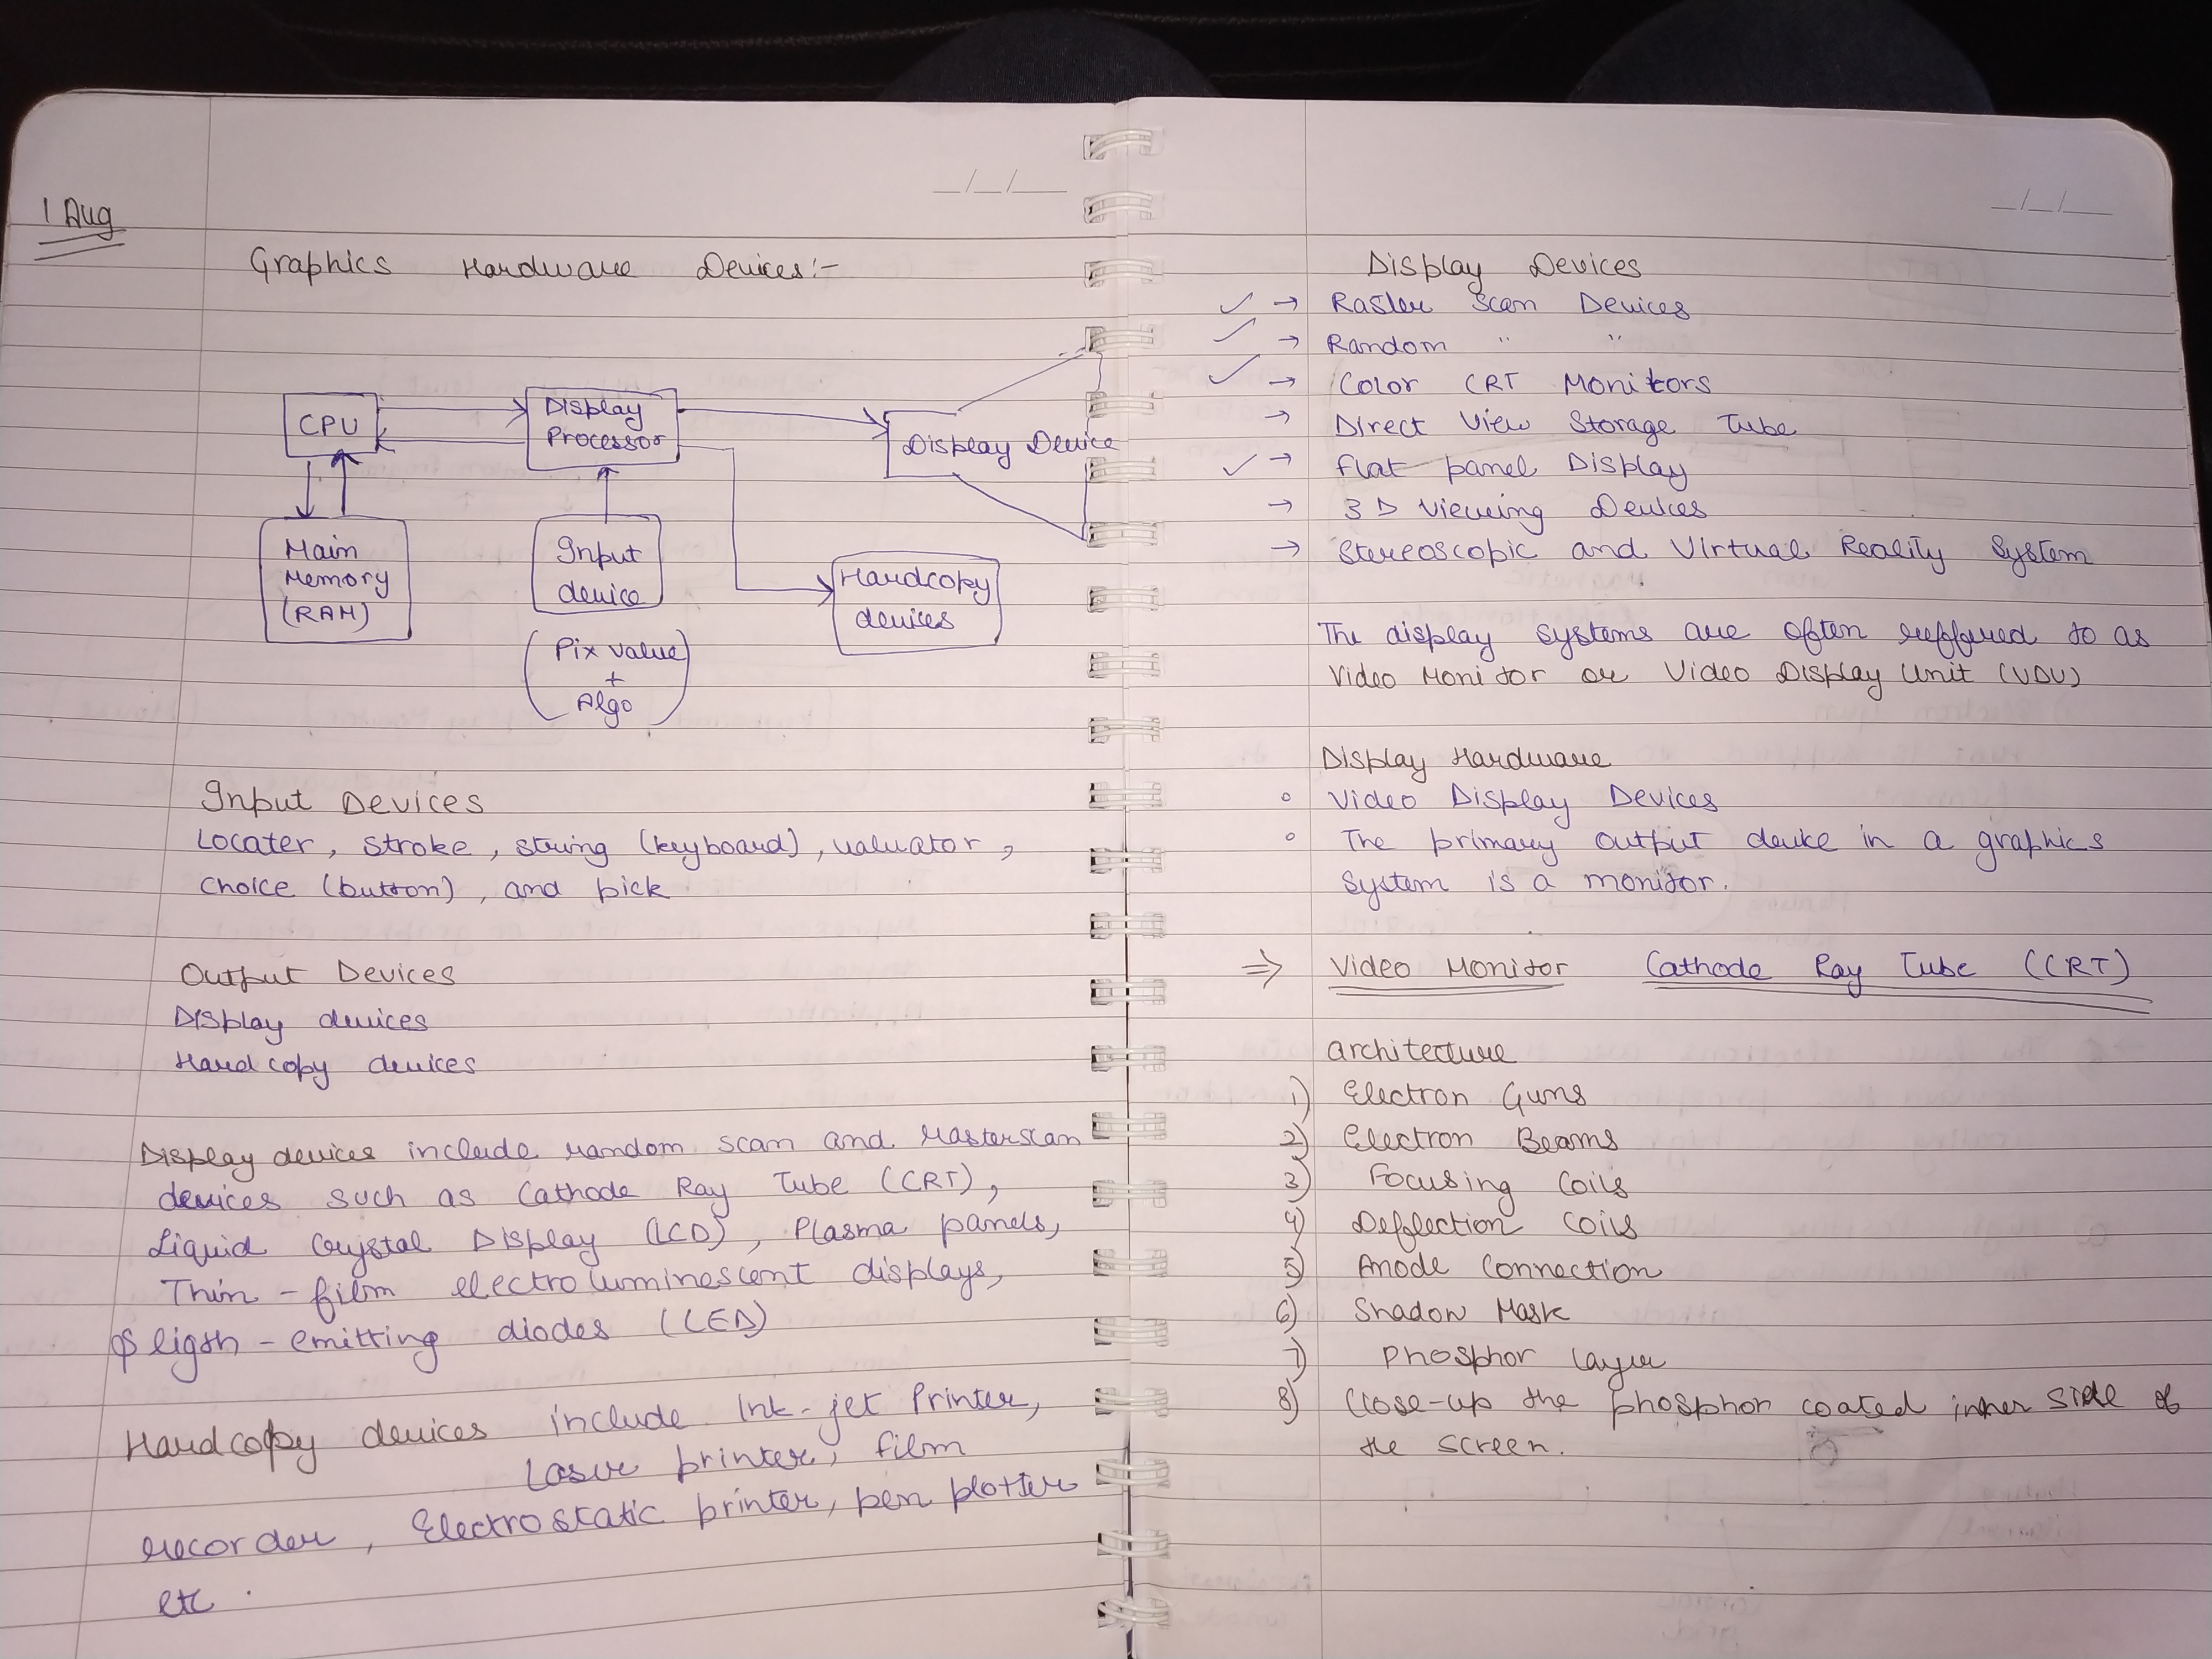 1 Aug
Graphics Hardware Devices:-
CPU
Display
Processor
Display Device
Main
Memory
(RAM)
Input
device
Hardcopy
devices
(Pix value
+
Algo)
Input Devices
Locater, stroke, string (keyboard), valuator,
choice (button), and pick
Output Devices
Display devices
Hard copy devices
Display devices include random scan and rasterscan
devices such as Cathode Ray Tube (CRT),
Liquid Crystal Display (LCD), Plasma panels,
Thin-film electroluminescent displays,
ligth-emitting diodes (LED)
Hardcopy devices include Ink-jet Printer,
Laser printer, film
recorder, Electrostatic printer, pen plotter
etc.
Display Devices
✓ → Raster Scan Devices
✓ → Random " "
✓ → Color CRT Monitors
→ Direct View Storage Tube
✓ → flat panel Display
→ 3D Viewing Devices
→ Stereoscopic and Virtual Reality System
The display systems are often reffered to as
Video Monitor or Video Display Unit (VDU)
Display Hardware
∘ Video Display Devices
∘ The primary output device in a graphics
system is a monitor.
⇒ Video Monitor Cathode Ray Tube (CRT)
architecture
1) Electron Guns
2) Electron Beams
3) Focusing Coils
4) Deflection Coils
5) Anode Connection
6) Shadow Mask
7) Phosphor layer
8) Close-up the phosphor coated inner side of
the screen.